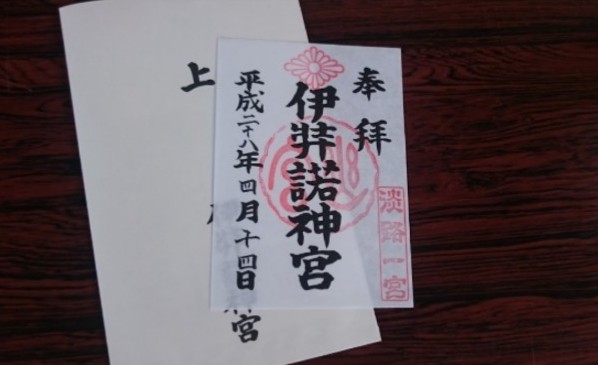 奉拝
淡路一宮
伊弉諾神宮
平成二十八年四月十四日
上
宮